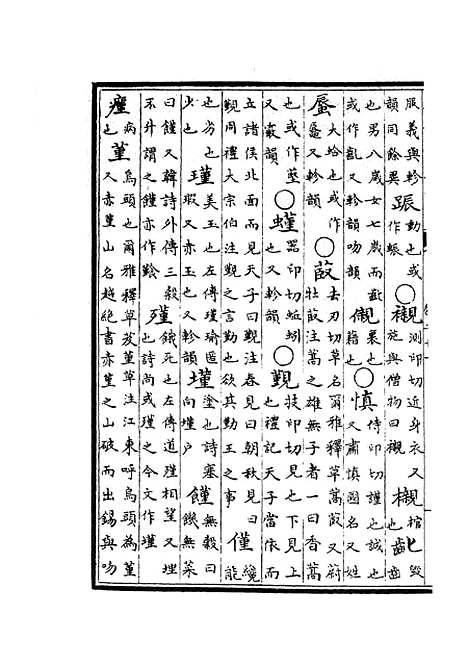 脤義與軫韻同餘異 䟴動也或作 ○襯測印切近身衣又施與僧物曰襯 櫬棺也 毀齒
也男八歲女七歲而齔或作齓又軫韻吻韻 儭裏也藉也 ○慎侍印切謹也誠也又肅慎國名又姓
蜃大蛤也或作蜄又軫韻 ○菣去刃切草名爾雅釋草蒿菣又蔚牡菣注蒿之雄無子者一曰香蒿
也或作 又霰韻 ○螼器印切蚯蚓也又軫韻 ○覲技印切見也下見上也禮記天子當依而
立諸侯北面而見天子曰覲注春見曰朝秋見曰覲周禮大宗伯注覲之言勤也欲其勤王之事 僅纔能
也劣也少也 瑾美玉也左傳瑾瑜匿瑕又赤玉也又軫韻 墐塗也詩塞向墐戶 饉無穀曰饑無菜
曰饉又韓詩外傳三穀不升謂之饉亦作 殣餓死也左傳道殣相望又埋也詩尚或殣之今文作墐
㾙病也 堇烏頭也爾雅釋草芨堇草注江東呼烏頭為堇又赤堇山名越絕書赤堇之山破而出錫與吻